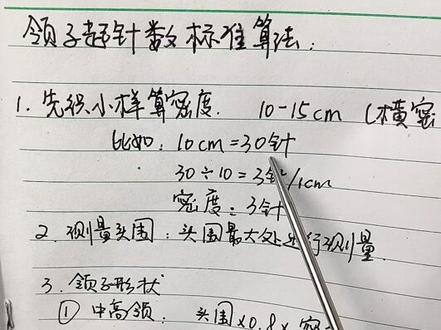 领子起针数标准算法:
1. 先织小样算密度. 10-15cm (横密
比如: 10cm=30针
30÷10=3针/1cm
密度:3针
2. 测量头围:头围最大处进行测量.
3. 领子形状
① 中高领: 头围×0.8×密